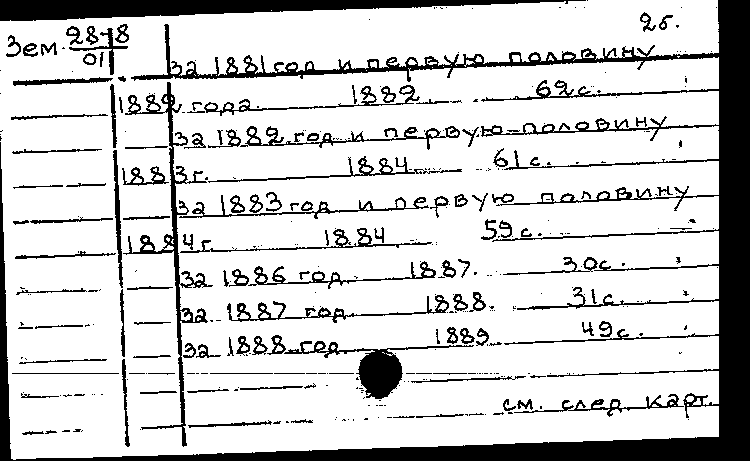 2б.
Зем. 28-8
01
за 1881 год и первую половину
1882 года. 1882. 62с.
за 1882 год и первую половину
1883г. 1884. 61с.
за 1883 год и первую половину
1884г. 1884. 59с.
за 1886 год. 1887. 30с.
за 1887 год. 1888. 31с.
за 1888 год 1889 49с.
см. след. карт.